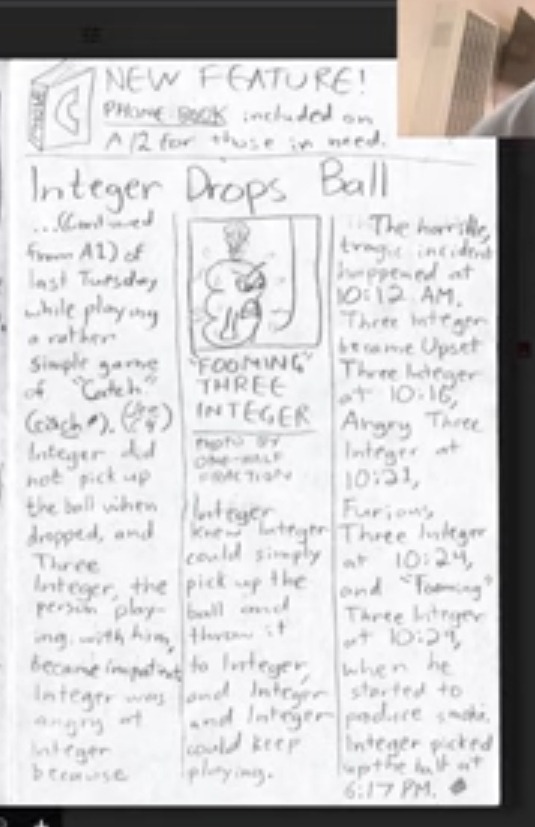 NEW FEATURE!
PHONE BOOK included on
A12 for those in need.
Integer Drops Ball
...(Continued
from A1) of
last Tuesday
while playing
a rather
simple game
of "Catch"
Integer did
not pick up
the ball when
dropped, and
Three
Integer, the
person play-
ing with him,
became impatient
Integer was
angry at
Integer
because
"FOOMING"
THREE
INTEGER
PHOTO BY
ONE-HALF
FRACTION
Integer
knew Integer
could simply
pick up the
ball and
throw it
to Integer,
and Integer
and Integer
could keep
playing.
The horrible,
tragic incident
happened at
10:12 AM.
Three Integer
became Upset
Three Integer
at 10:16,
Angry Three
Integer at
10:21,
Furious,
Three Integer
at 10:24,
and "Fooming"
Three Integer
at 10:29,
when he
started to
produce smoke.
Integer picked
up the ball at
6:17 PM.